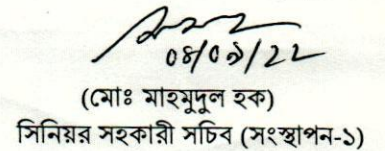 ০৪/০৯/২২
(মোঃ মাহমুদুল হক)
সিনিয়র সহকারী সচিব (সংস্থাপন-১)